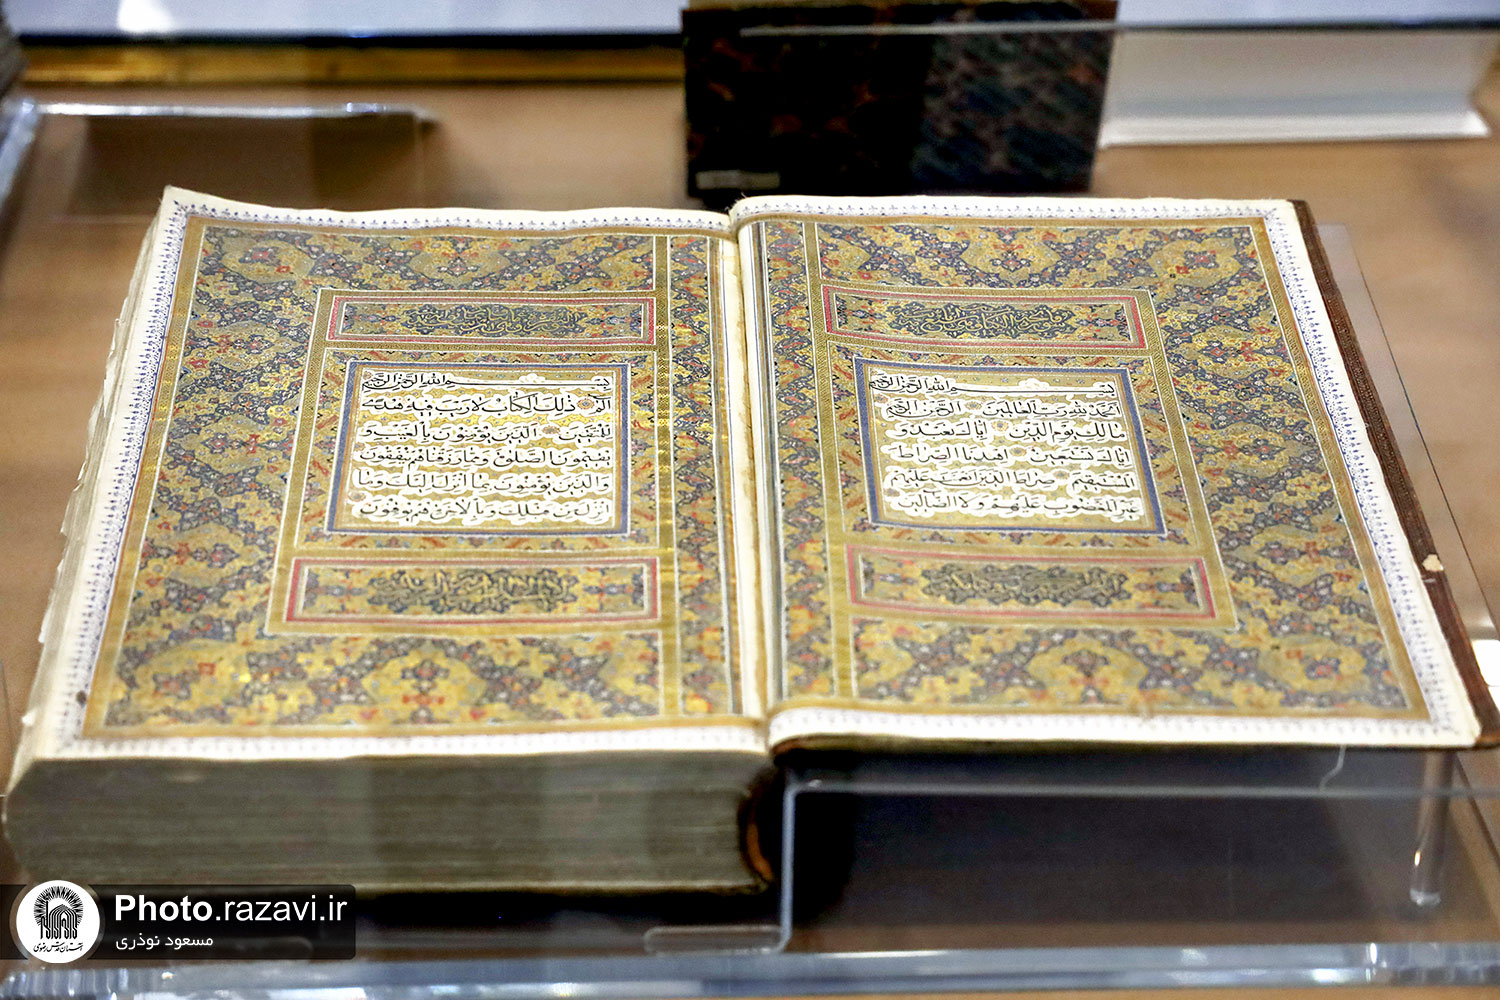 بسم الله الرحمن الرحيم
الحمد لله رب العالمين الرحمن الرحيم
مالك يوم الدين اياك نعبد و
اياك نستعين اهدنا الصراط
المستقيم صراط الذين انعمت عليهم
غير المغضوب عليهم ولا الضالين
بسم الله الرحمن الرحيم
الم ذلك الكتاب لا ريب فيه هدى
للمتقين الذين يؤمنون بالغيب و
يقيمون الصلوة ومما رزقناهم ينفقون
والذين يؤمنون بما انزل اليك وما
انزل من قبلك وبالاخرة هم يوقنون
Photo.razavi.ir
مسعود نوذری
آستان قدس رضوی